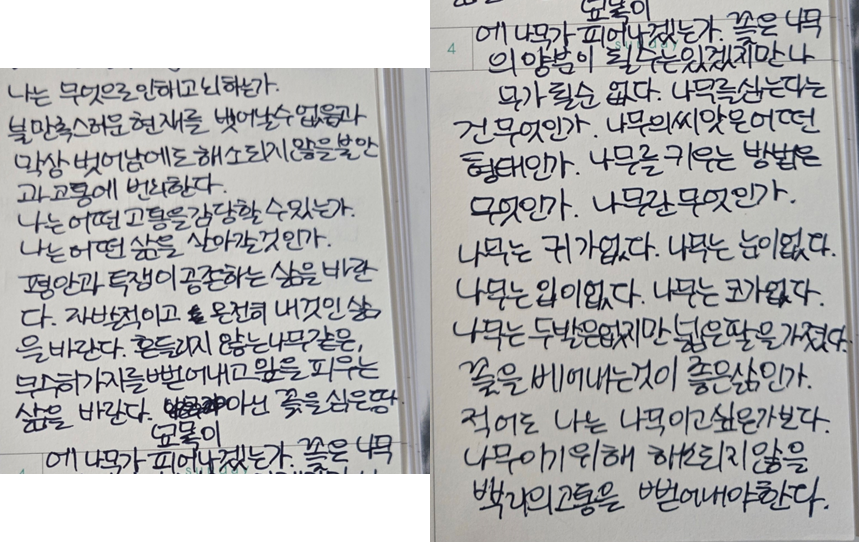 나는 무엇으로 인하고 뇌하는가.
불만족스러운 현재를 벗어날수 없음과
막상 벗어남에도 해소되지 않을 불안
과 고통에 번뇌한다.
나는 어떤 고통을 감당할 수 있는가.
나는 어떤 삶을 살아갈 것인가.
평안과 투쟁이 공존하는 삶을 바란
다. 자박적이고 온전히 내것인 삶
을 바란다. 흔들리지 않는 나무같은,
무수히 가지를 뻗어내고 잎을 피우는
삶을 바란다. 아닌 꽃을 심은 땅
묘목이
에 나무가 피어나겠는가. 꽃은 나무
4
sunday
의 양분이 될 수는 있겠지만 나
무가 될순 없다. 나무를 심는다는
건 무엇인가. 나무의 씨앗은 어떤
형태인가. 나무를 키우는 방법은
무엇인가. 나무란 무엇인가.
나무는 귀가 없다. 나무는 눈이 없다.
나무는 입이 없다. 나무는 코가 없다.
나무는 두발은 없지만 넓은 팔을 가졌다.
꽃을 베어내는 것이 좋은 삶인가.
적어도 나는 나무이고 싶은가보다.
나무이기 위해 해소되지 않을
백가의 고통을 뻗어내야 한다.